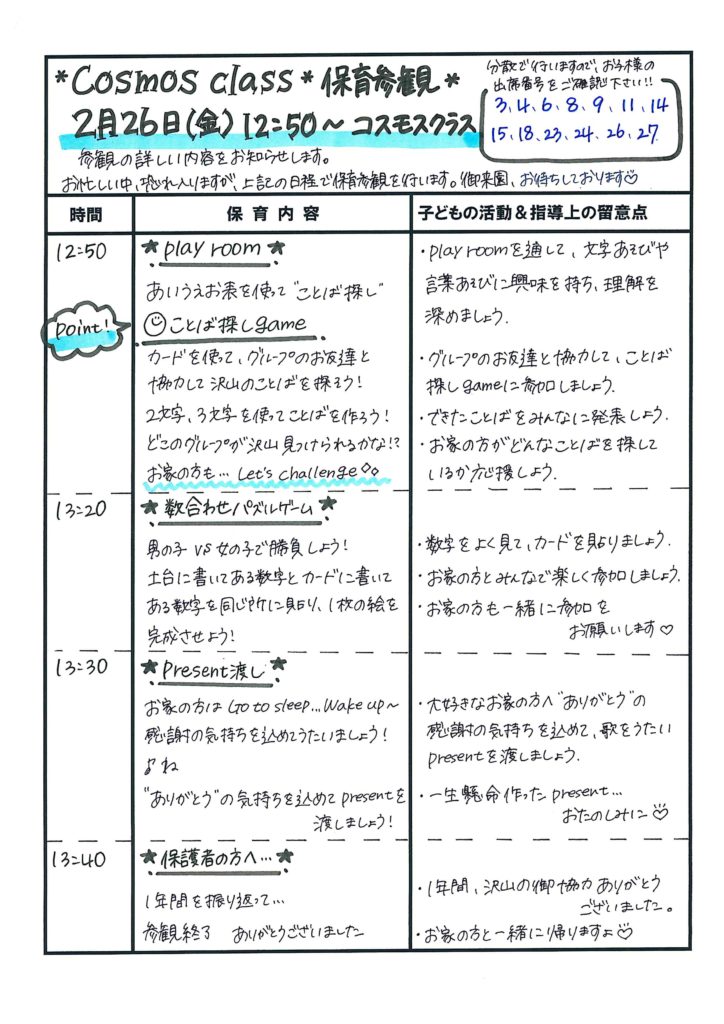 *Cosmos class* 保育参観*
2月26日(金)12:50～ コスモスクラス
分散で行いますので、お子様の
出席番号をご確認下さい!!
3,4,6,8,9,11,14
15,18,23,24,26,27
参観の詳しい内容をお知らせします。
お忙しい中、恐れ入りますが、上記の日程で保育参観を行います。御来園、お待ちしております♡
時間
保育内容
子どもの活動＆指導上の留意点
12:50
★play room★
あいうえお表を使って“ことば探し”
point!
☺ことば探しgame
カードを使って、グループのお友達と
協力して沢山のことばを探そう!
2文字、3文字を使ってことばを作ろう!
どこのグループが沢山見つけられるかな!?
お家の方も… Let's challenge◇◇
・play roomを通して、文字あそびや
言葉あそびに興味を持ち、理解を
深めましょう.
・グループのお友達と協力して、ことば
探しgameに参加しましょう.
・できたことばをみんなに発表しよう.
・お家の方がどんなことばを探して
いるか応援しよう.
13:20
★数合わせパズルゲーム★
男の子 VS 女の子で勝負しよう!
土台に書いてある数字とカードに書いて
ある数字を同じ所に貼り、1枚の絵を
完成させよう!
・数字をよく見て、カードを貼りましょう.
・お家の方とみんなで楽しく参加しましょう.
・お家の方も一緒に参加を
お願いします♡
13:30
★Present渡し★
お家の方は Go to sleep...Wake up～
感謝の気持ちを込めてうたいましょう!
♪ね
“ありがとう”の気持ちを込めてpresentを
渡しましょう!
・大好きなお家の方へ“ありがとう”の
感謝の気持ちを込めて、歌をうたい
presentを渡しましょう.
・一生懸命作ったpresent…
おたのしみに♡
13:40
★保護者の方へ…★
1年間を振り返って…
参観終了 ありがとうございました
・1年間、沢山の御協力ありがとう
ございました。
・お家の方と一緒に帰りますよ♡